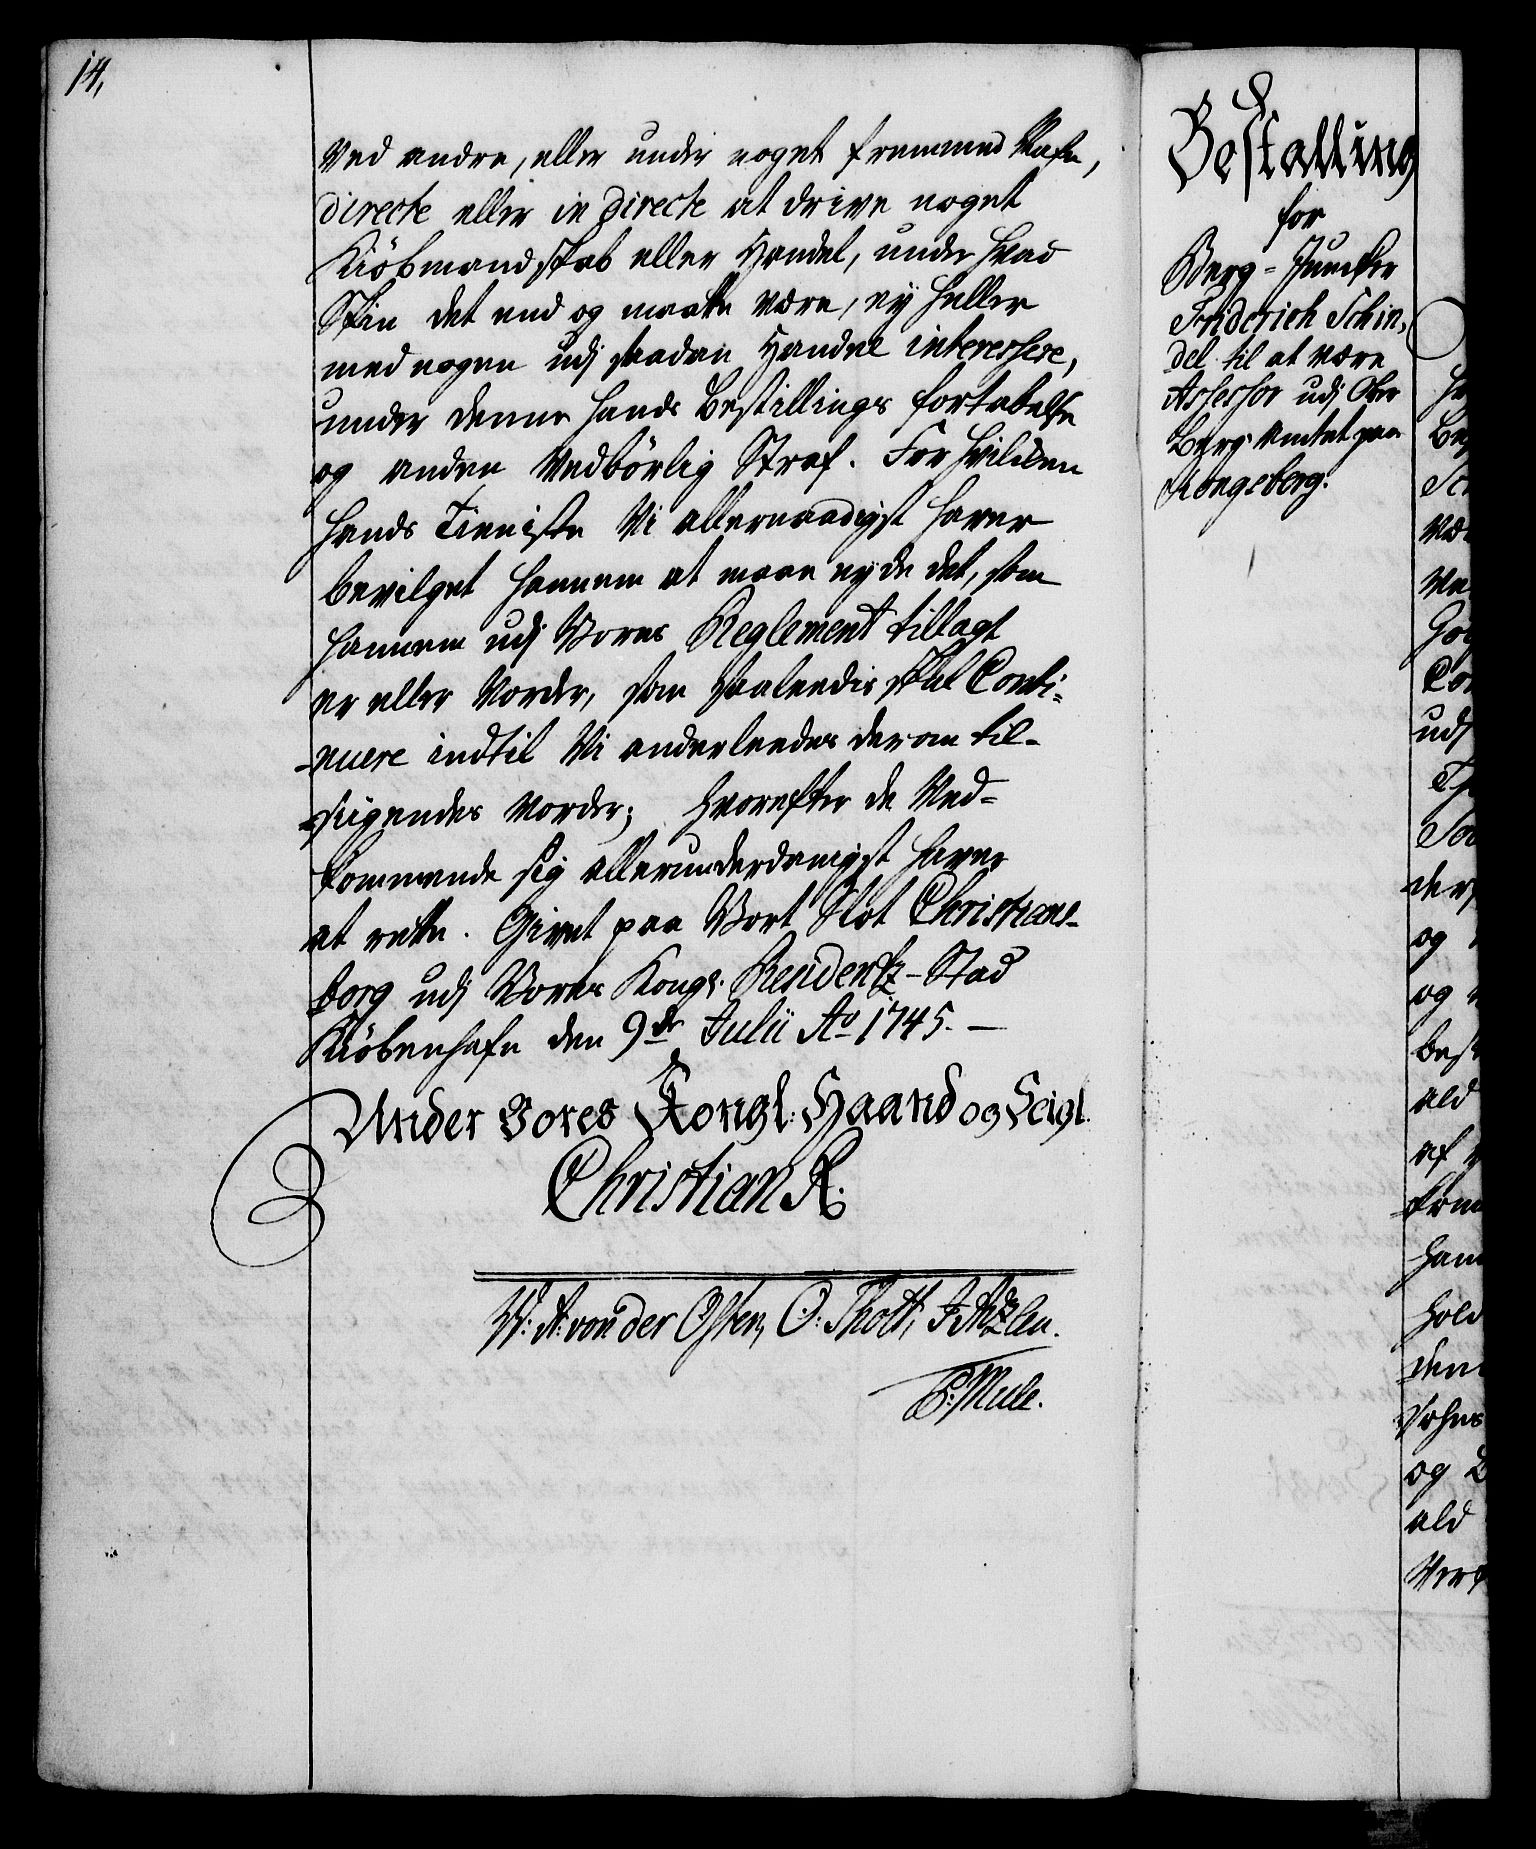 14,
Ved andre, eller under noget fremmed Nafn,
directe eller in directe at drive noget
Kiöbmandskab eller Handel, under hvad
Skin det end og maatte være, ey heller
med nogen udj saadan Handel interessere,
under denne hands Bestillings fortabelse
og anden Vedbörlig Straf. For hvilcken
hands Tieniste Vi allernaadigst haver
bevilget hannem at maae nyde det, som
hannem udj Vores Reglement tillagt
er eller Vorder, som saaledis skal Conti-
nuere indtil Vi anderleedes derom til-
sigendes Vorder; hvorefter de Ved-
kommende sig allerunderdanigst haver
at rette. Givet paa Vort Slot Christians-
borg udj Vores Kongl. Residentz-Stad
Kiöbenhafn den 9de Julii Ao 1745.
Under Vores Kongl: Haand og Seigl.
Christian R.
W: A: von der Osten, O: Thott, F Holtzen.
P: Mule.
Bestalling
for
Berg-Juncker
Friderich Schin-
del til at være
Assessor udj Ober
Berg Amtet paa
Kongsberg.
og
og
ald
af
ham
hold
den
og
ald